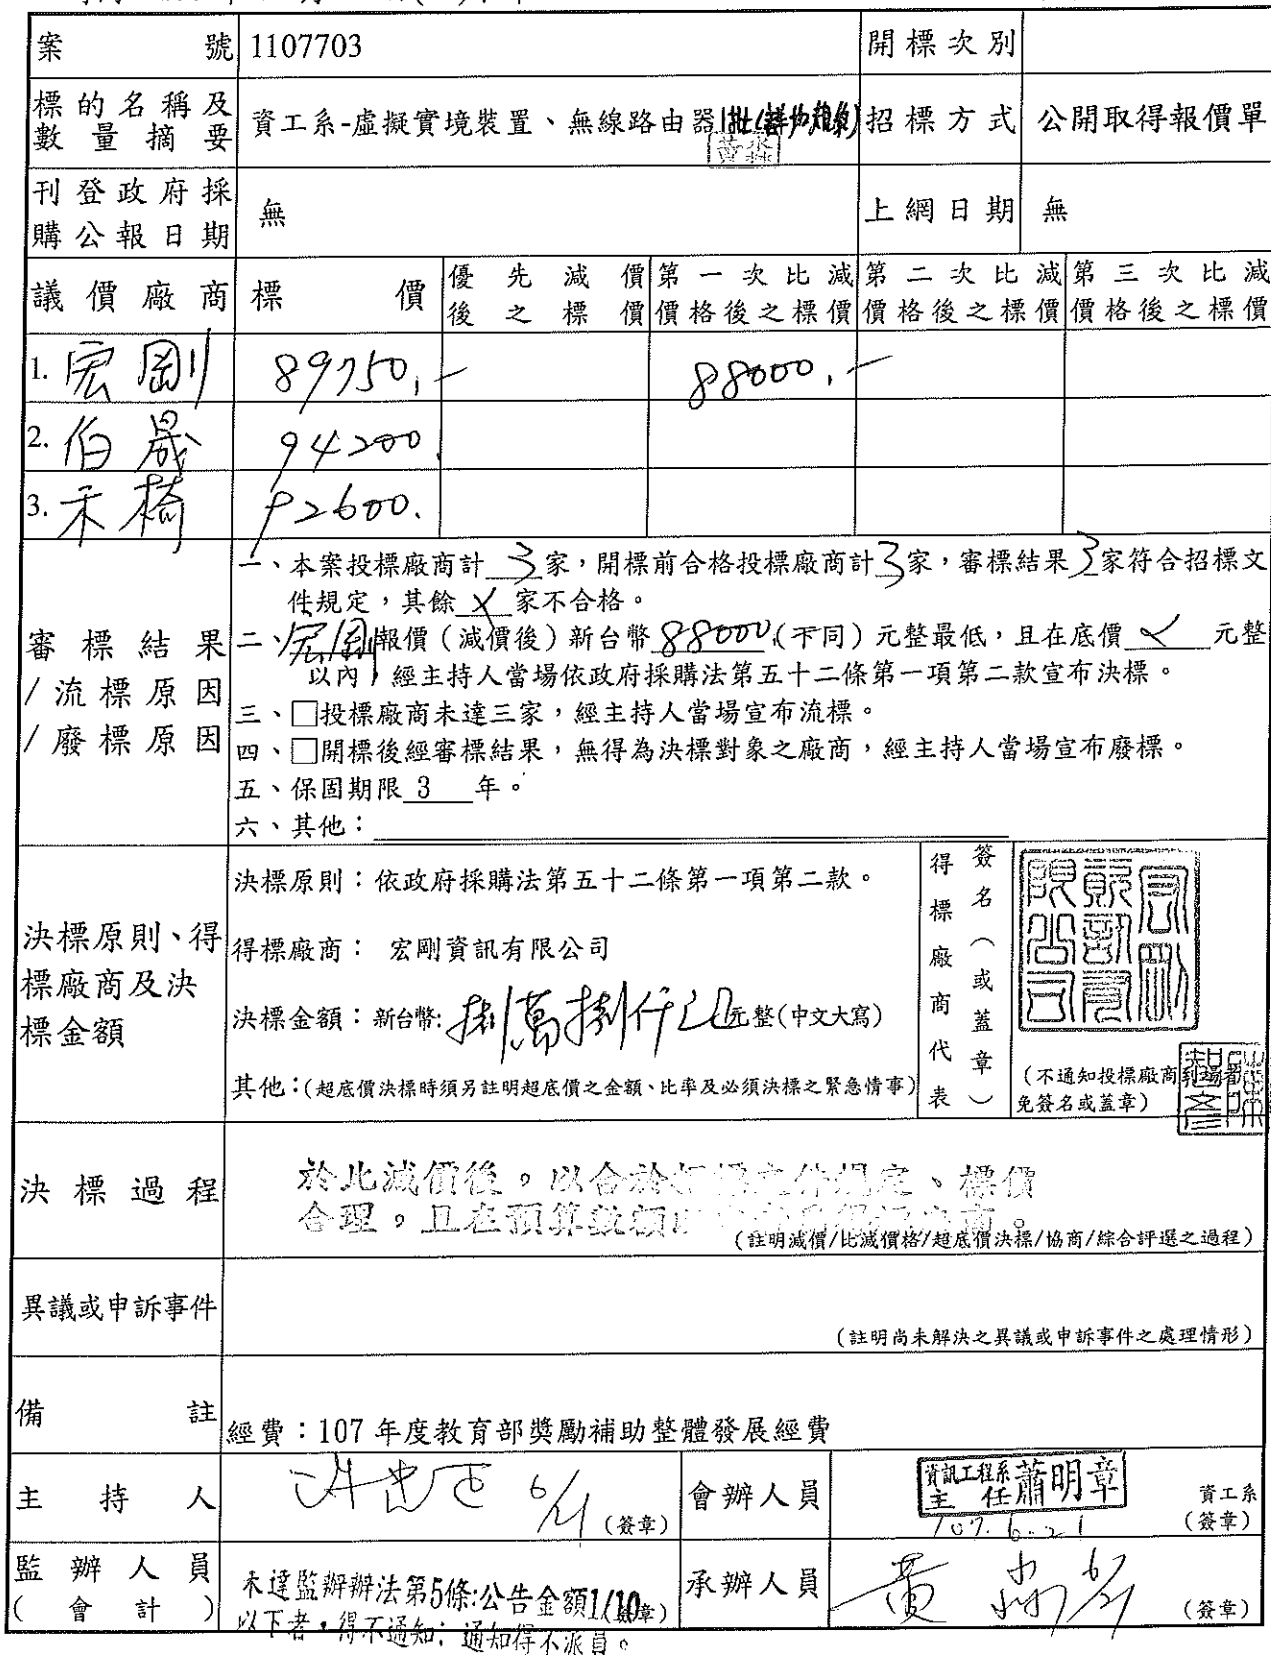 案號 1107703 開標次別
標的名稱及數量摘要 資工系-虛擬實境裝置、無線路由器1批 招標方式 公開取得報價單
刊登政府採購公報日期 無 上網日期 無
議價廠商 標價 優先減價後之標價 第一次比減價格後之標價 第二次比減價格後之標價 第三次比減價格後之標價
1. 宏剛 89750.- 88000.-
2. 伯晟 94200.
3. 禾椅 92600.
審標結果/流標原因/廢標原因
一、本案投標廠商計 3 家，開標前合格投標廠商計 3 家，審標結果 3 家符合招標文
件規定，其餘 X 家不合格。
二、宏剛報價（減價後）新台幣 88000 (下同）元整最低，且在底價 元整
以內，經主持人當場依政府採購法第五十二條第一項第二款宣布決標。
三、□投標廠商未達三家，經主持人當場宣布流標。
四、□開標後經審標結果，無得為決標對象之廠商，經主持人當場宣布廢標。
五、保固期限 3 年。
六、其他：
決標原則、得標廠商及決標金額
決標原則：依政府採購法第五十二條第一項第二款。
得標廠商： 宏剛資訊有限公司
決標金額：新台幣: 捌萬捌仟 元整(中文大寫)
其他：(超底價決標時須另註明超底價之金額、比率及必須決標之緊急情事)
得標廠商代表 簽名（或蓋章）
宏剛資訊有限公司
(不通知投標廠商到場者
免簽名或蓋章)
決標過程
於比減價後。以合於招標文件規定、標價
合理。且在預算數額
(註明減價/比減價格/超底價決標/協商/綜合評選之過程)
異議或申訴事件
(註明尚未解決之異議或申訴事件之處理情形)
備註 經費：107 年度教育部獎勵補助整體發展經費
主持人 6/21 (簽章) 會辦人員 資訊工程系主任 蕭明章 107.6.21 資工系 (簽章)
監辦人員(會計) 未達監辦辦法第5條:公告金額1/10 (簽章)
以下者，得不通知；通知得不派員。
承辦人員 黃 6/21 (簽章)